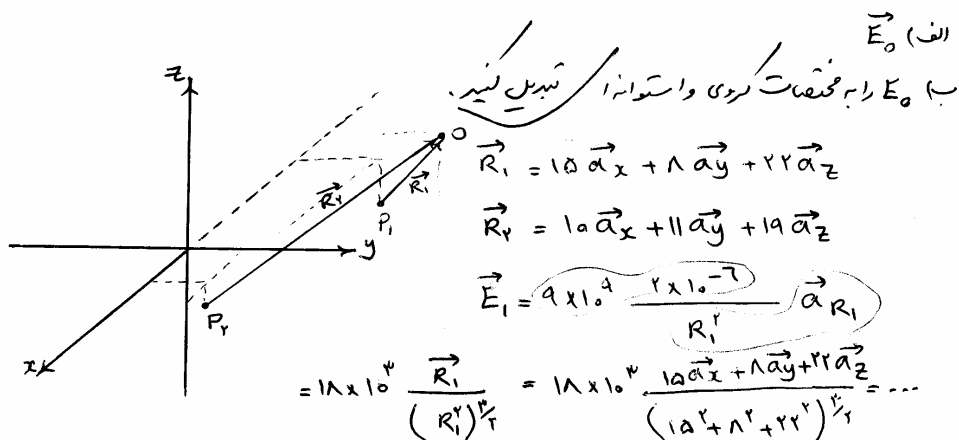 الف) $\vec{E}_0$
ب) $E_0$ را به مختصات کروی و استوانه‌ای تبدیل کنید.
z
y
x
O
P₁
P₂
$\vec{R}_1$
$\vec{R}_۲$
$\vec{R}_1 = ۱۵\vec{a}_x + ۸\vec{a}_y + ۲۲\vec{a}_z$
$\vec{R}_۲ = ۱۰\vec{a}_x + ۱۱\vec{a}_y + ۱۹\vec{a}_z$
$\vec{E}_1 = ۹ \times ۱۰^{۹} \frac{۲ \times ۱۰^{-۶}}{R_1^{۲}} \vec{a}_{R_1}$
$= ۱۸ \times ۱۰^{۳} \frac{\vec{R}_1}{(R_1^{۲})^{۳/۲}} = ۱۸ \times ۱۰^{۳} \frac{۱۵\vec{a}_x + ۸\vec{a}_y + ۲۲\vec{a}_z}{(۱۵^{۲} + ۸^{۲} + ۲۲^{۲})^{۳/۲}} = \dots$